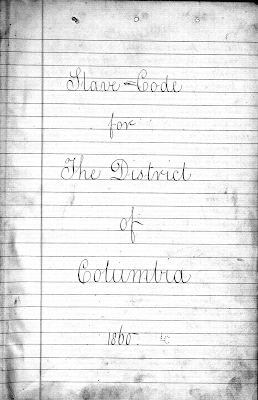 Slave-Code
for
The District
of
Columbia
1860